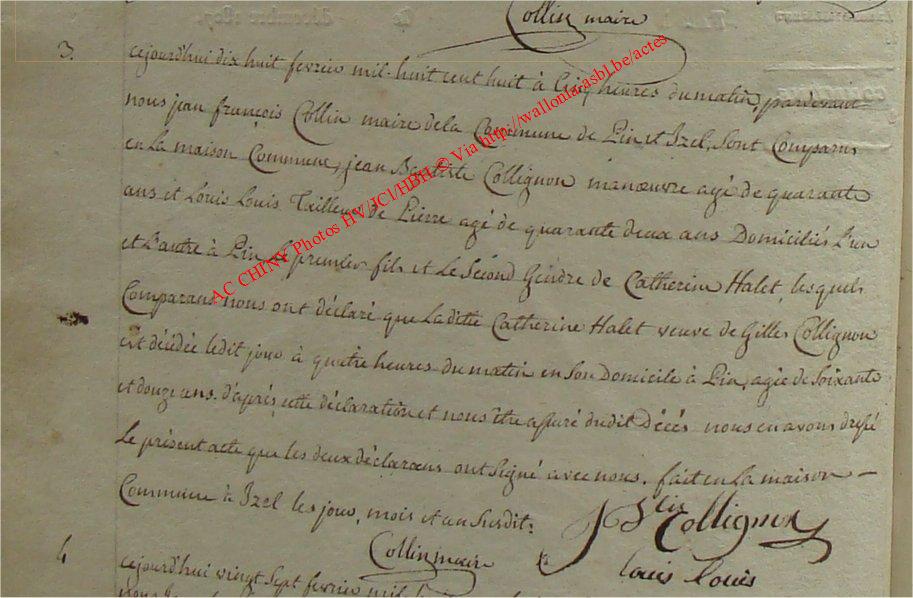 Collin maire
3.
cejourd'hui dix huit fevrier mil-huit cent huit à Cinq heures du matin, pardevant
nous jean françois Collin maire de la Commune de Pin et Izel, sont Comparus
en la maison Commune, jean Baptiste Collignon manœuvre agé de quarante
ans et Louis Louis Tailleur de Pierre agé de quarante deux ans Domiciliés L'un
et L'autre à Pin, le premier fils et Le Second Gendre de Catherine Halet, lesquels
Comparans nous ont déclaré que La ditte Catherine Halet veuve de Gilles Collignon
est décédée ledit jour à quatre heures du matin en Son Domicile à Pin, agée de Soixante
et douze ans. d'après cette déclaration et nous être assuré dudit Décès nous en avons dressé
Le présent acte que les deux déclarans ont Signé avec nous. fait en La maison
Commune à Izel les jour, mois et an Susdit.
J Bte Collignon
Collin maire
Louis Louis
4
cejourd'hui vingt Sept fevrier mil
nous
AC CHINY Photos HV/JCl/HBH © Via http://wallonia.asbl.be/actes